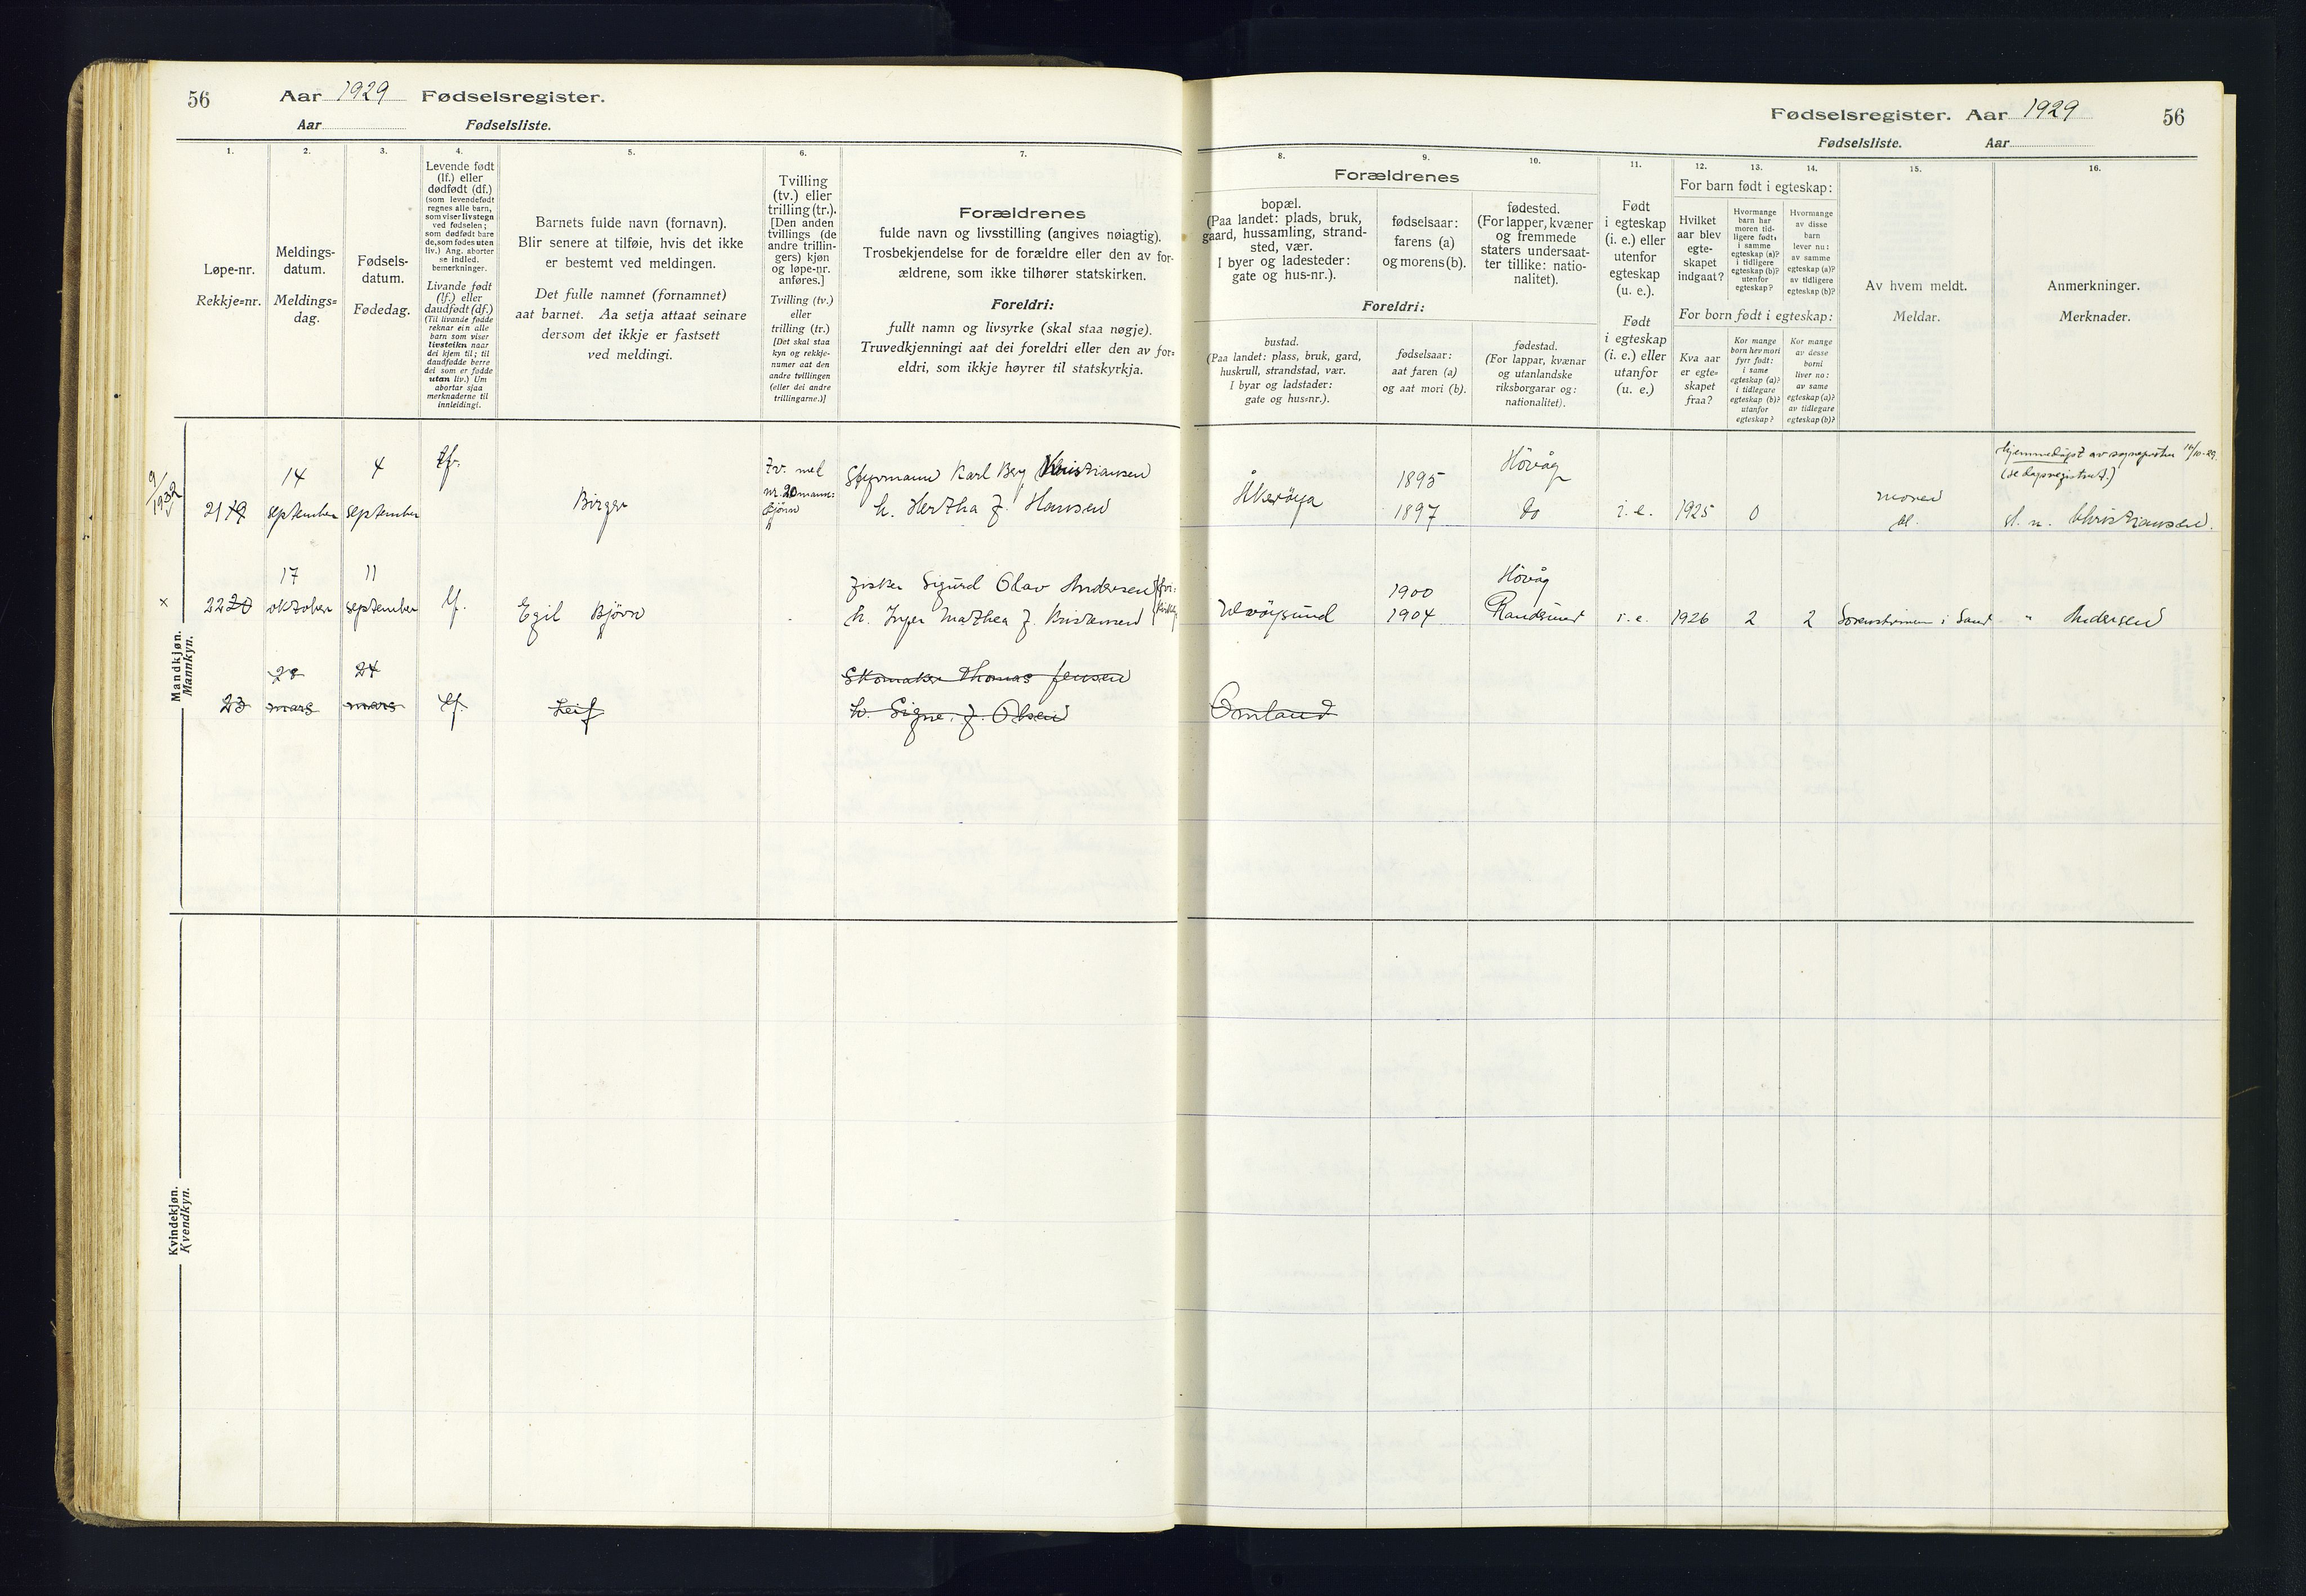 56 Aar 1929 Fødselsregister.
Aar Fødselsliste.
1.
2.
3.
4.
5.
6.
7.
Løpe-nr.
Rekkje=nr.
Meldings-
datum.
Meldings=
dag.
Fødsels-
datum.
Fødedag.
Levende født
(lf.) eller
dødfødt (df.)
(som levendefødt
regnes alle barn,
som viser livstegn
ved fødselen;
som dødfødt bare
de, som fødes uten
liv.) Ang. aborter
se indled.
bemerkninger.
Livande født
(lf.) eller
daudfødt (df.)
(Til livande fødde
reknar ein alle
barn som viser
livsteikn naar
dei kjem til; til
daudfødde berre
dei som er fødde
utan liv.) Um
abortar sjaa
merknaderne til
innleidingi.
Barnets fulde navn (fornavn).
Blir senere at tilføie, hvis det ikke
er bestemt ved meldingen.
Det fulle namnet (fornamnet)
aat barnet. Aa setja attaat seinare
dersom det ikkje er fastsett
ved meldingi.
Tvilling
(tv.) eller
trilling (tr.).
[Den anden
tvillings (de
andre trillin-
gers) kjøn
og løpe-nr.
anføres.]
Tvilling (tv.)
eller
trilling (tr.)
[Det skal staa
kyn og rekkje-
numer aat den
andre tvillingen
(eller dei andre
trillingarne.)]
Forældrenes
fulde navn og livsstilling (angives nøiagtig).
Trosbekjendelse for de forældre eller den av for-
ældrene, som ikke tilhører statskirken.
Foreldri:
fullt namn og livsyrke (skal staa nøgje).
Truvedkjenningi aat dei foreldri eller den av for=
eldri, som ikkje høyrer til statskyrkja.
Mandkjøn.
Mannkyn.
9/1932
21 19
14
september
4
september
lf.
Birger
tv. med
nr. 20 mann:
kjönn
Styrmann Karl Berg Kristiansen
h. Hertha f. Hansen
×
22 20
17
oktober
11
september
lf.
Egil Bjørn
Fisker Sigurd Olav Andersen
h. Inger Mathea f. Kristensen
23
28
mars
24
mars
lf.
Leif
Skomaker Thomas Jensen
h. Signe f. Olsen
Kvindekjøn.
Kvendkyn.
Fødselsregister. Aar 1929 56
Fødselsliste. Aar
8.
9.
10.
11.
12.
13.
14.
15.
16.
Forældrenes
bopæl.
(Paa landet: plads, bruk,
gaard, hussamling, strand-
sted, vær.
I byer og ladesteder:
gate og hus-nr.).
fødselsaar:
farens (a)
og morens (b).
fødested.
(For lapper, kvæner
og fremmede
staters undersaat-
ter tillike: natio-
nalitet).
Foreldri:
bustad.
(Paa landet: plass, bruk, gard,
huskrull, strandstad, vær.
I byar og ladstader:
gate og hus=nr.).
fødselsaar:
aat faren (a)
og aat mori (b).
fødestad.
(For lappar, kvænar
og utanlandske
riksborgarar og:
nationalitet).
Født
i egteskap
(i. e.) eller
utenfor
egteskap
(u. e.).
Født
i egteskap
(i. e.) eller
utanfor
(u. e.)
For barn født i egteskap:
Hvilket
aar blev
egte-
skapet
indgaat?
Hvormange
barn har
moren tid-
ligere født:
i samme
egteskap (a)?
i tidligere
egteskap (b)?
utenfor
egteskap?
Hvormange
av disse
barn
lever nu:
av samme
egteskap (a)?
av tidligere
egteskap (b)?
For born født i egteskap:
Kva aar
er egte=
skapet
fraa?
Kor mange
born hev mori
fyrr født:
i same
egteskap (a)?
i tidlegare
egteskap (b)?
utanfor
egteskap?
Kor mange
av desse
borni
liver no:
av same
egteskap (a)?
av tidlegare
egteskap (b)?
Av hvem meldt.
Meldar.
Anmerkninger.
Merknader.
Åkerøya
1895
1897
Hövåg
do
i. e.
1925
0
moren
Hjemmedöpt av sognepresten 14/10-29.
(se dåpsregistret.)
sl. n. Christiansen.
Ulvøysund
1900
1904
Hövåg
Randesund
i. e.
1926
2
2
" Andersen
Omland